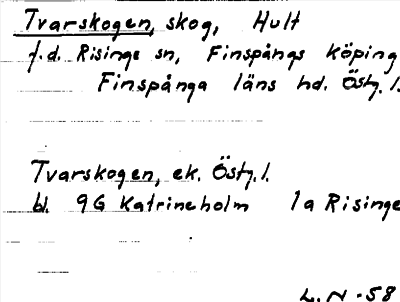 Tvarskogen, skog, Hult
f.d. Risinge sn, Finspångs köping
Finspånga läns hd. Östg. l.
Tvarskogen, ek. Östg. l.
bl. 9G Katrineholm 1a Risinge
L. N -58